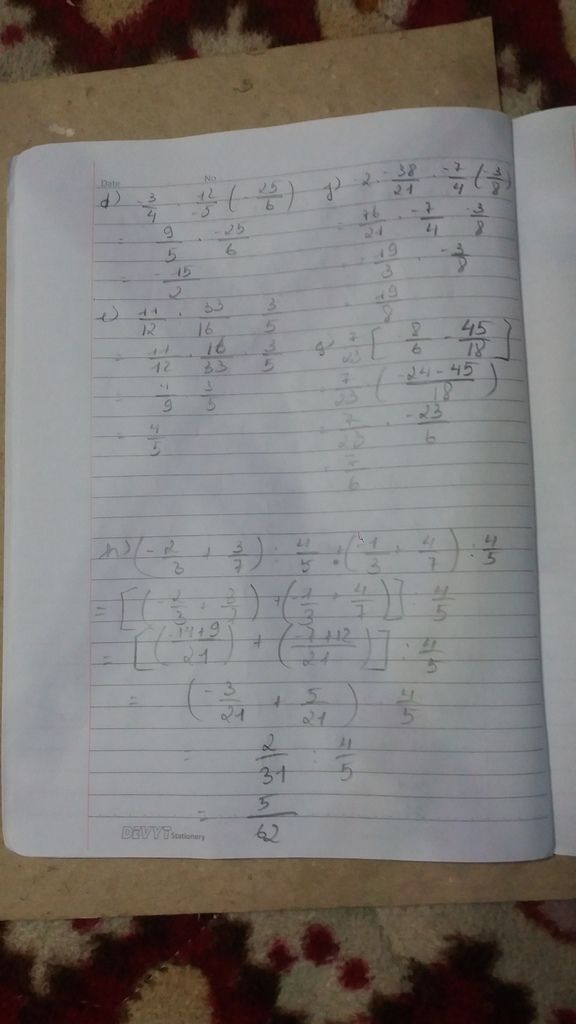 Date No
d) -3/4 · 12/-5 (-25/6)
= 9/5 · -25/6
= -15/2
e) 11/12 : 33/16 · 3/5
= 11/12 · 16/33 · 3/5
= 4/9 · 3/5
= 4/5
f) -2 · -38/21 · -7/4 (-3/8)
= 76/21 · -7/4 · -3/8
= -19/3 · -3/8
= 19/8
g) 7/23 [ 8/6 - 45/18 ]
= 7/23 · (-24-45/18)
= 7/23 · -23/6
= 7/6
h) (-2/3 + 3/7) : 4/5 + (-1/3 + 4/7) : 4/5
= [(-2/3 + 3/7) + (-1/3 + 4/7)] : 4/5
= [(-14+9/21) + (-7+12/21)] : 4/5
= (-3/21 + 5/21) : 4/5
= 2/31 : 4/5
= 5/62
DEVYT Stationery